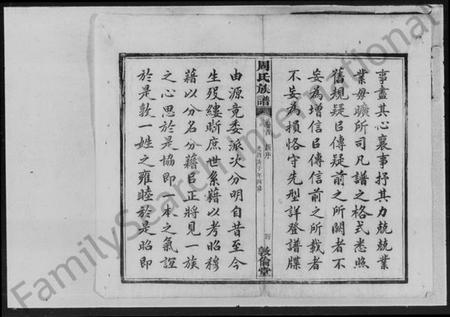 事盡其心襄事抒其力兢兢業
業毋曠所司凡譜之格式悉照
舊規疑以傳疑前之所闕者不
妄為增信以傳信前之所載者
不妄為損恪守先型詳登譜牒
周氏族譜
敦倫堂
由源竟委派次分明自昔至今
生歿縷晰庶世系藉以考昭穆
藉以分名分藉以正將見一族
之心思於是協即一本之氣誼
於是敦一姓之雍睦於是昭即
FamilySearch International